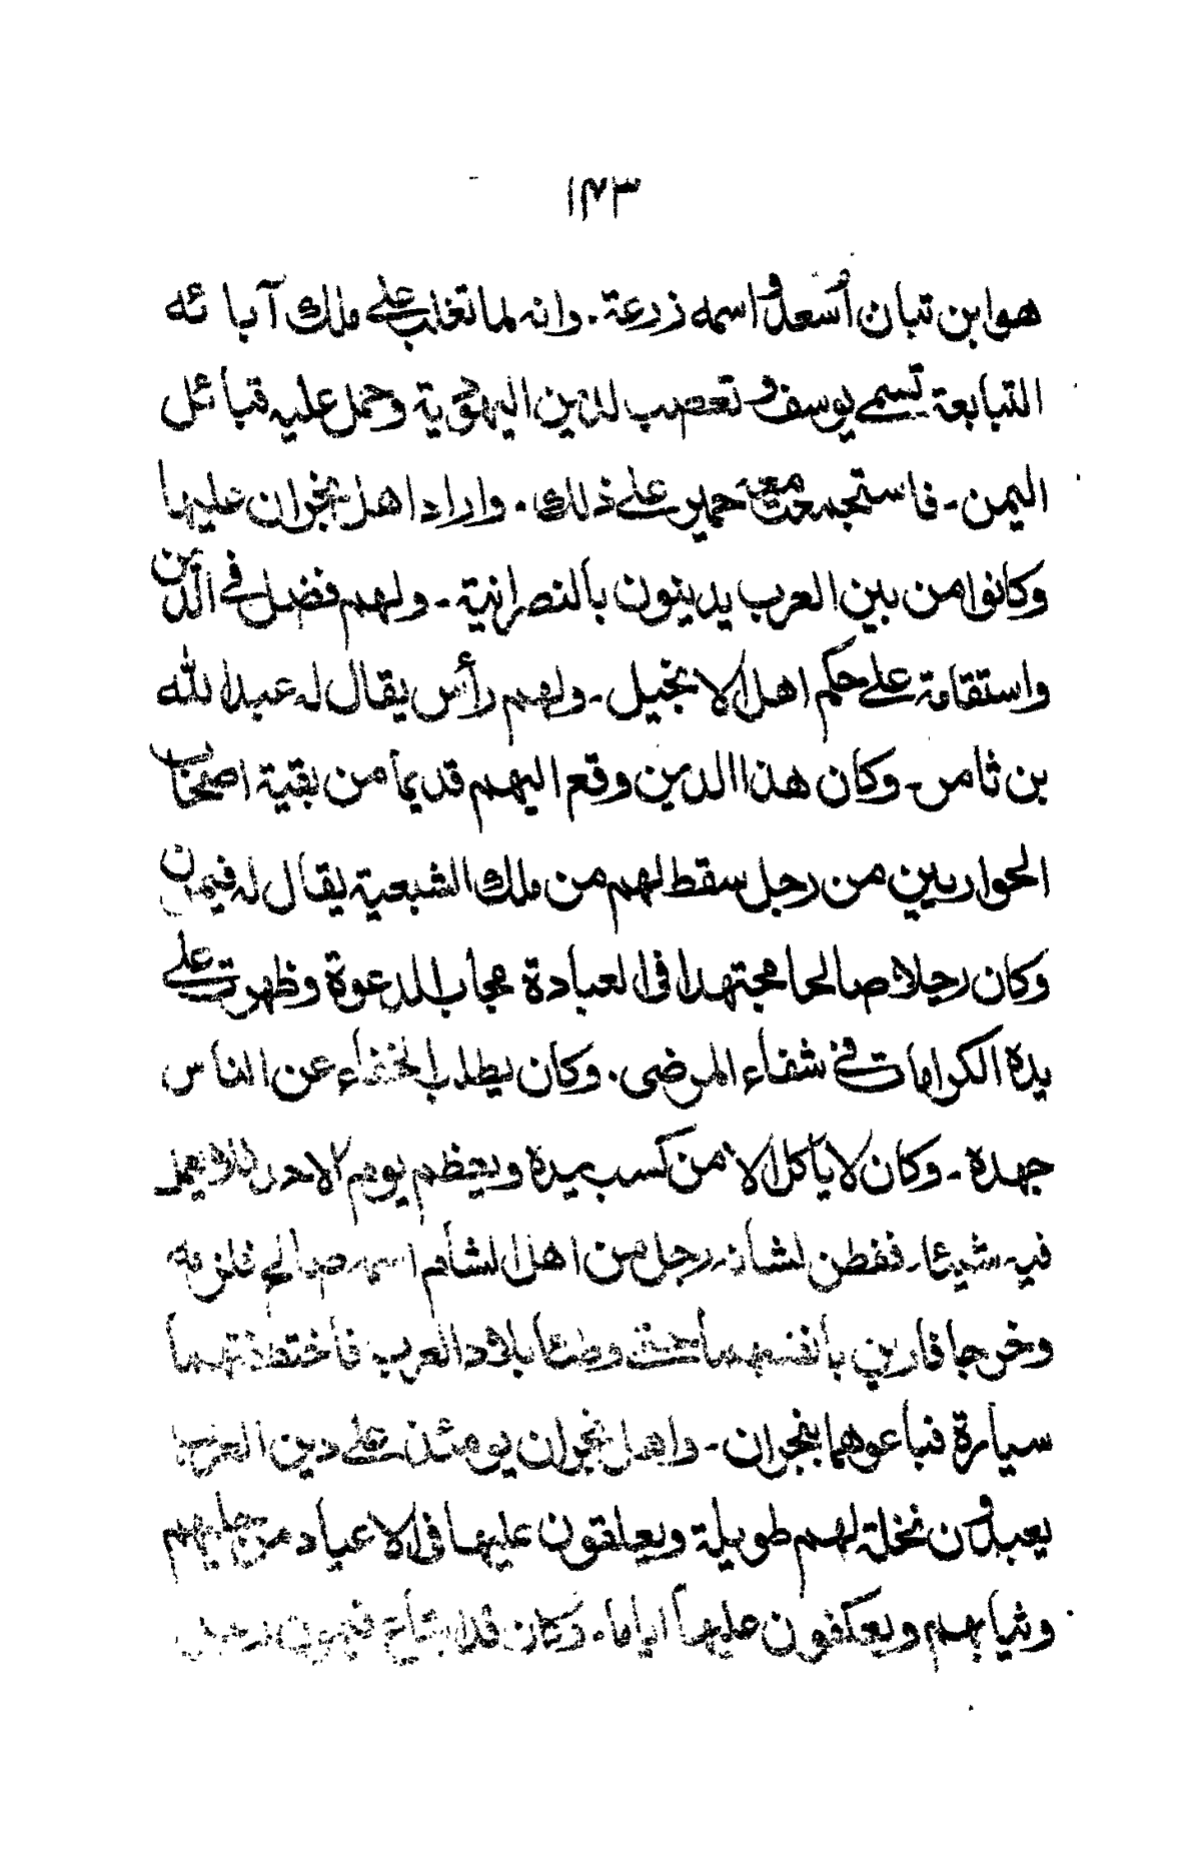 ۱۴۳
هو ابن تبان أسعد واسمه زرعة. وانه لما تغلب على ملك آبائه
التبابعة تسمى يوسف وتعصب لدين اليهودية وحمل عليه قبائل
اليمن - فاستجمعت معه حمير على ذلك. واراد اهل نجران عليها
وكانوا من بين العرب يدينون بالنصرانية - ولهم فضل فى الدين
واستقامة على حكم اهل الانجيل - ولهم رأس يقال له عبد الله
بن ثامر - وكان هذا الدين وقع اليهم قديما من بقية اصحاب
الحواريين من رجل سقط لهم من ملك الشبعية يقال له فيمان
وكان رجلا صالحا مجتهدا فى العبادة مجاب الدعوة وظهرت على
يده الكرامات فى شفاء المرضى. وكان يطلب الخفاء عن الناس
جهده - وكان لا يأكل الا من كسب يده ويعظم يوم الاحد فلا يعمل
فيه شيئا - ففطن لشانه رجل من اهل الشأم اسمه صالح فلزمه
وخرجا فارين بأنفسهما حتى وطئا بلاد العرب فأختطفتهما
سيارة فباعوهما بنجران - واهل نجران يومئذ على دين العرب
يعبدون نخلة لهم طويلة ويعلقون عليها فى الاعياد من حليهم
وثيابهم ويعكفون عليها اياما. وكان قد ابتاع فيميون رجل